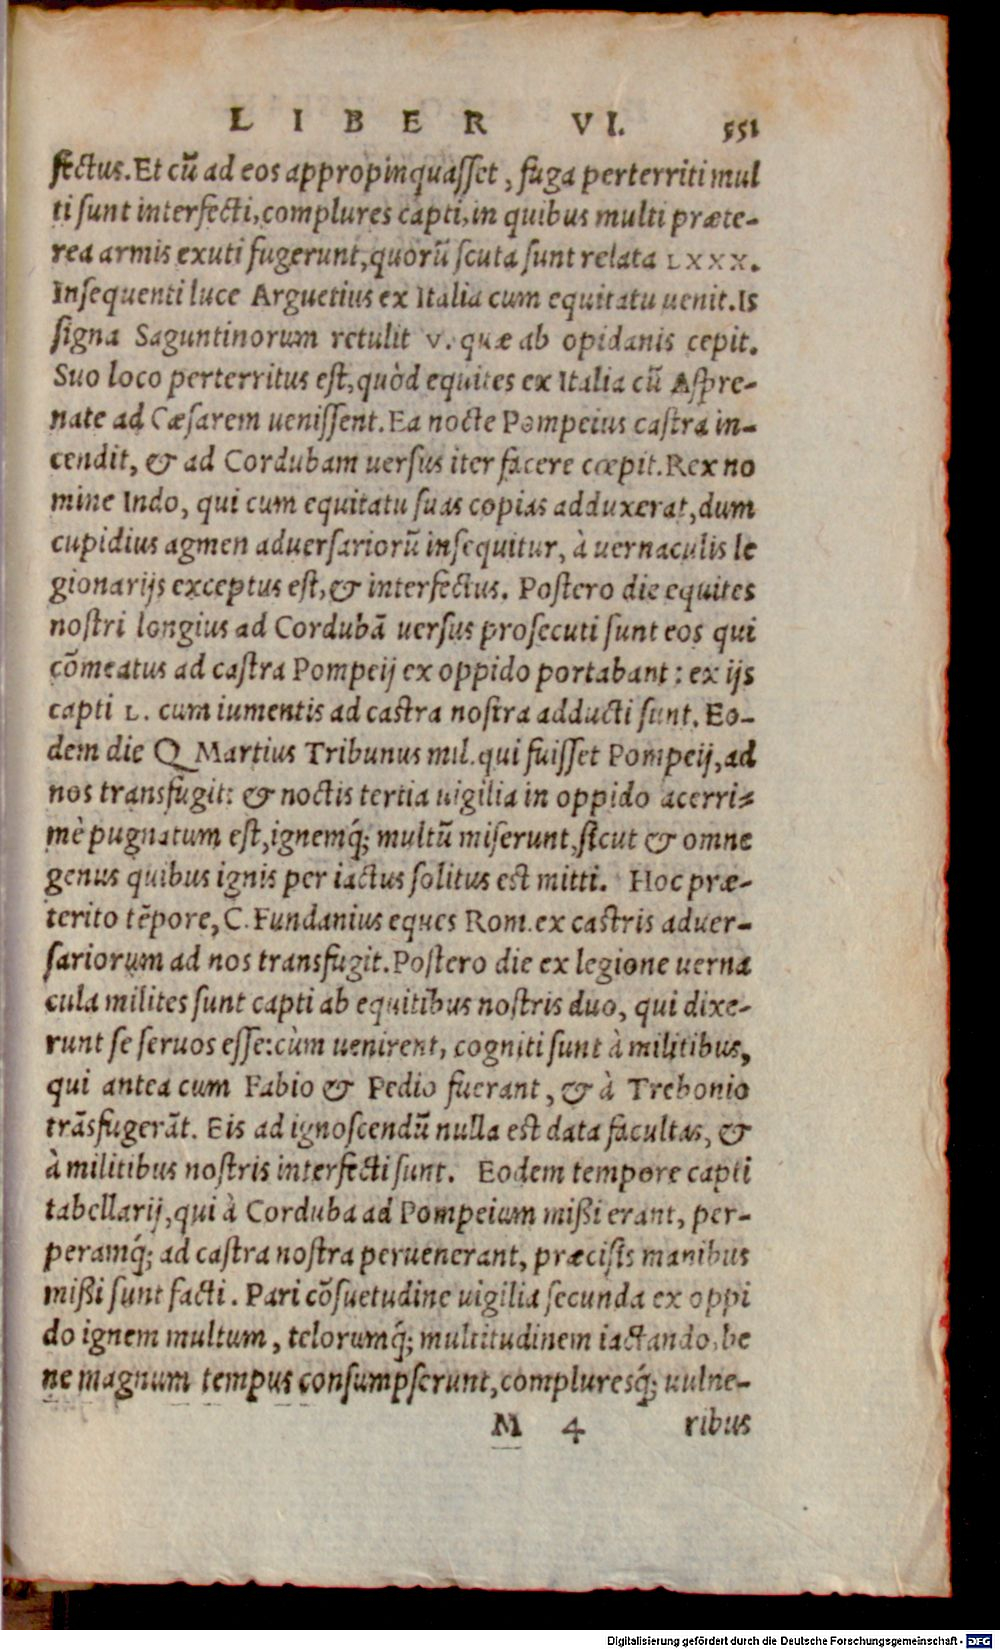 LIBER VI. 551
fectus. Et cũ ad eos appropinquasset, fuga perterriti mul
ti sunt interfecti, complures capti, in quibus multi præte-
rea armis exuti fugerunt, quorũ scuta sunt relata LXXX.
Insequenti luce Arguetius ex Italia cum equitatu uenit. Is
signa Saguntinorum retulit v. quæ ab opidanis cepit.
Suo loco perterritus est, quòd equites ex Italia cũ Aspre-
nate ad Cæsarem uenissent. Ea nocte Pompeius castra in-
cendit, & ad Cordubam uersus iter facere cœpit. Rex no
mine Indo, qui cum equitatu suas copias adduxerat, dum
cupidius agmen aduersariorũ insequitur, à uernaculis le
gionarijs exceptus est, & interfectus. Postero die equites
nostri longius ad Cordubã uersus prosecuti sunt eos qui
cõmeatus ad castra Pompeij ex oppido portabant: ex ijs
capti L. cum iumentis ad castra nostra adducti sunt. Eo-
dem die Q Martius Tribunus mil. qui fuisset Pompeij, ad
nos transfugit: & noctis tertia uigilia in oppido acerri-
mè pugnatum est, ignemq́; multũ miserunt, sicut & omne
genus quibus ignis per iactus solitus est mitti. Hoc præ-
terito tẽpore, C. Fundanius eques Rom. ex castris aduer-
sariorum ad nos transfugit. Postero die ex legione uerna
cula milites sunt capti ab equitibus nostris duo, qui dixe-
runt se seruos esse: cùm uenirent, cogniti sunt à militibus,
qui antea cum Fabio & Pedio fuerant, & à Trebonio
trãsfugerãt. Eis ad ignoscendũ nulla est data facultas, &
à militibus nostris interfecti sunt. Eodem tempore capti
tabellarij, qui à Corduba ad Pompeium mißi erant, per-
peramq́; ad castra nostra peruenerant, præcisis manibus
mißi sunt facti. Pari cõsuetudine uigilia secunda ex oppi
do ignem multum, telorumq́; multitudinem iactando, be
ne magnum tempus consumpserunt, compluresq́; uulne-
M 4 ribus
Digitalisierung gefördert durch die Deutsche Forschungsgemeinschaft - DFG